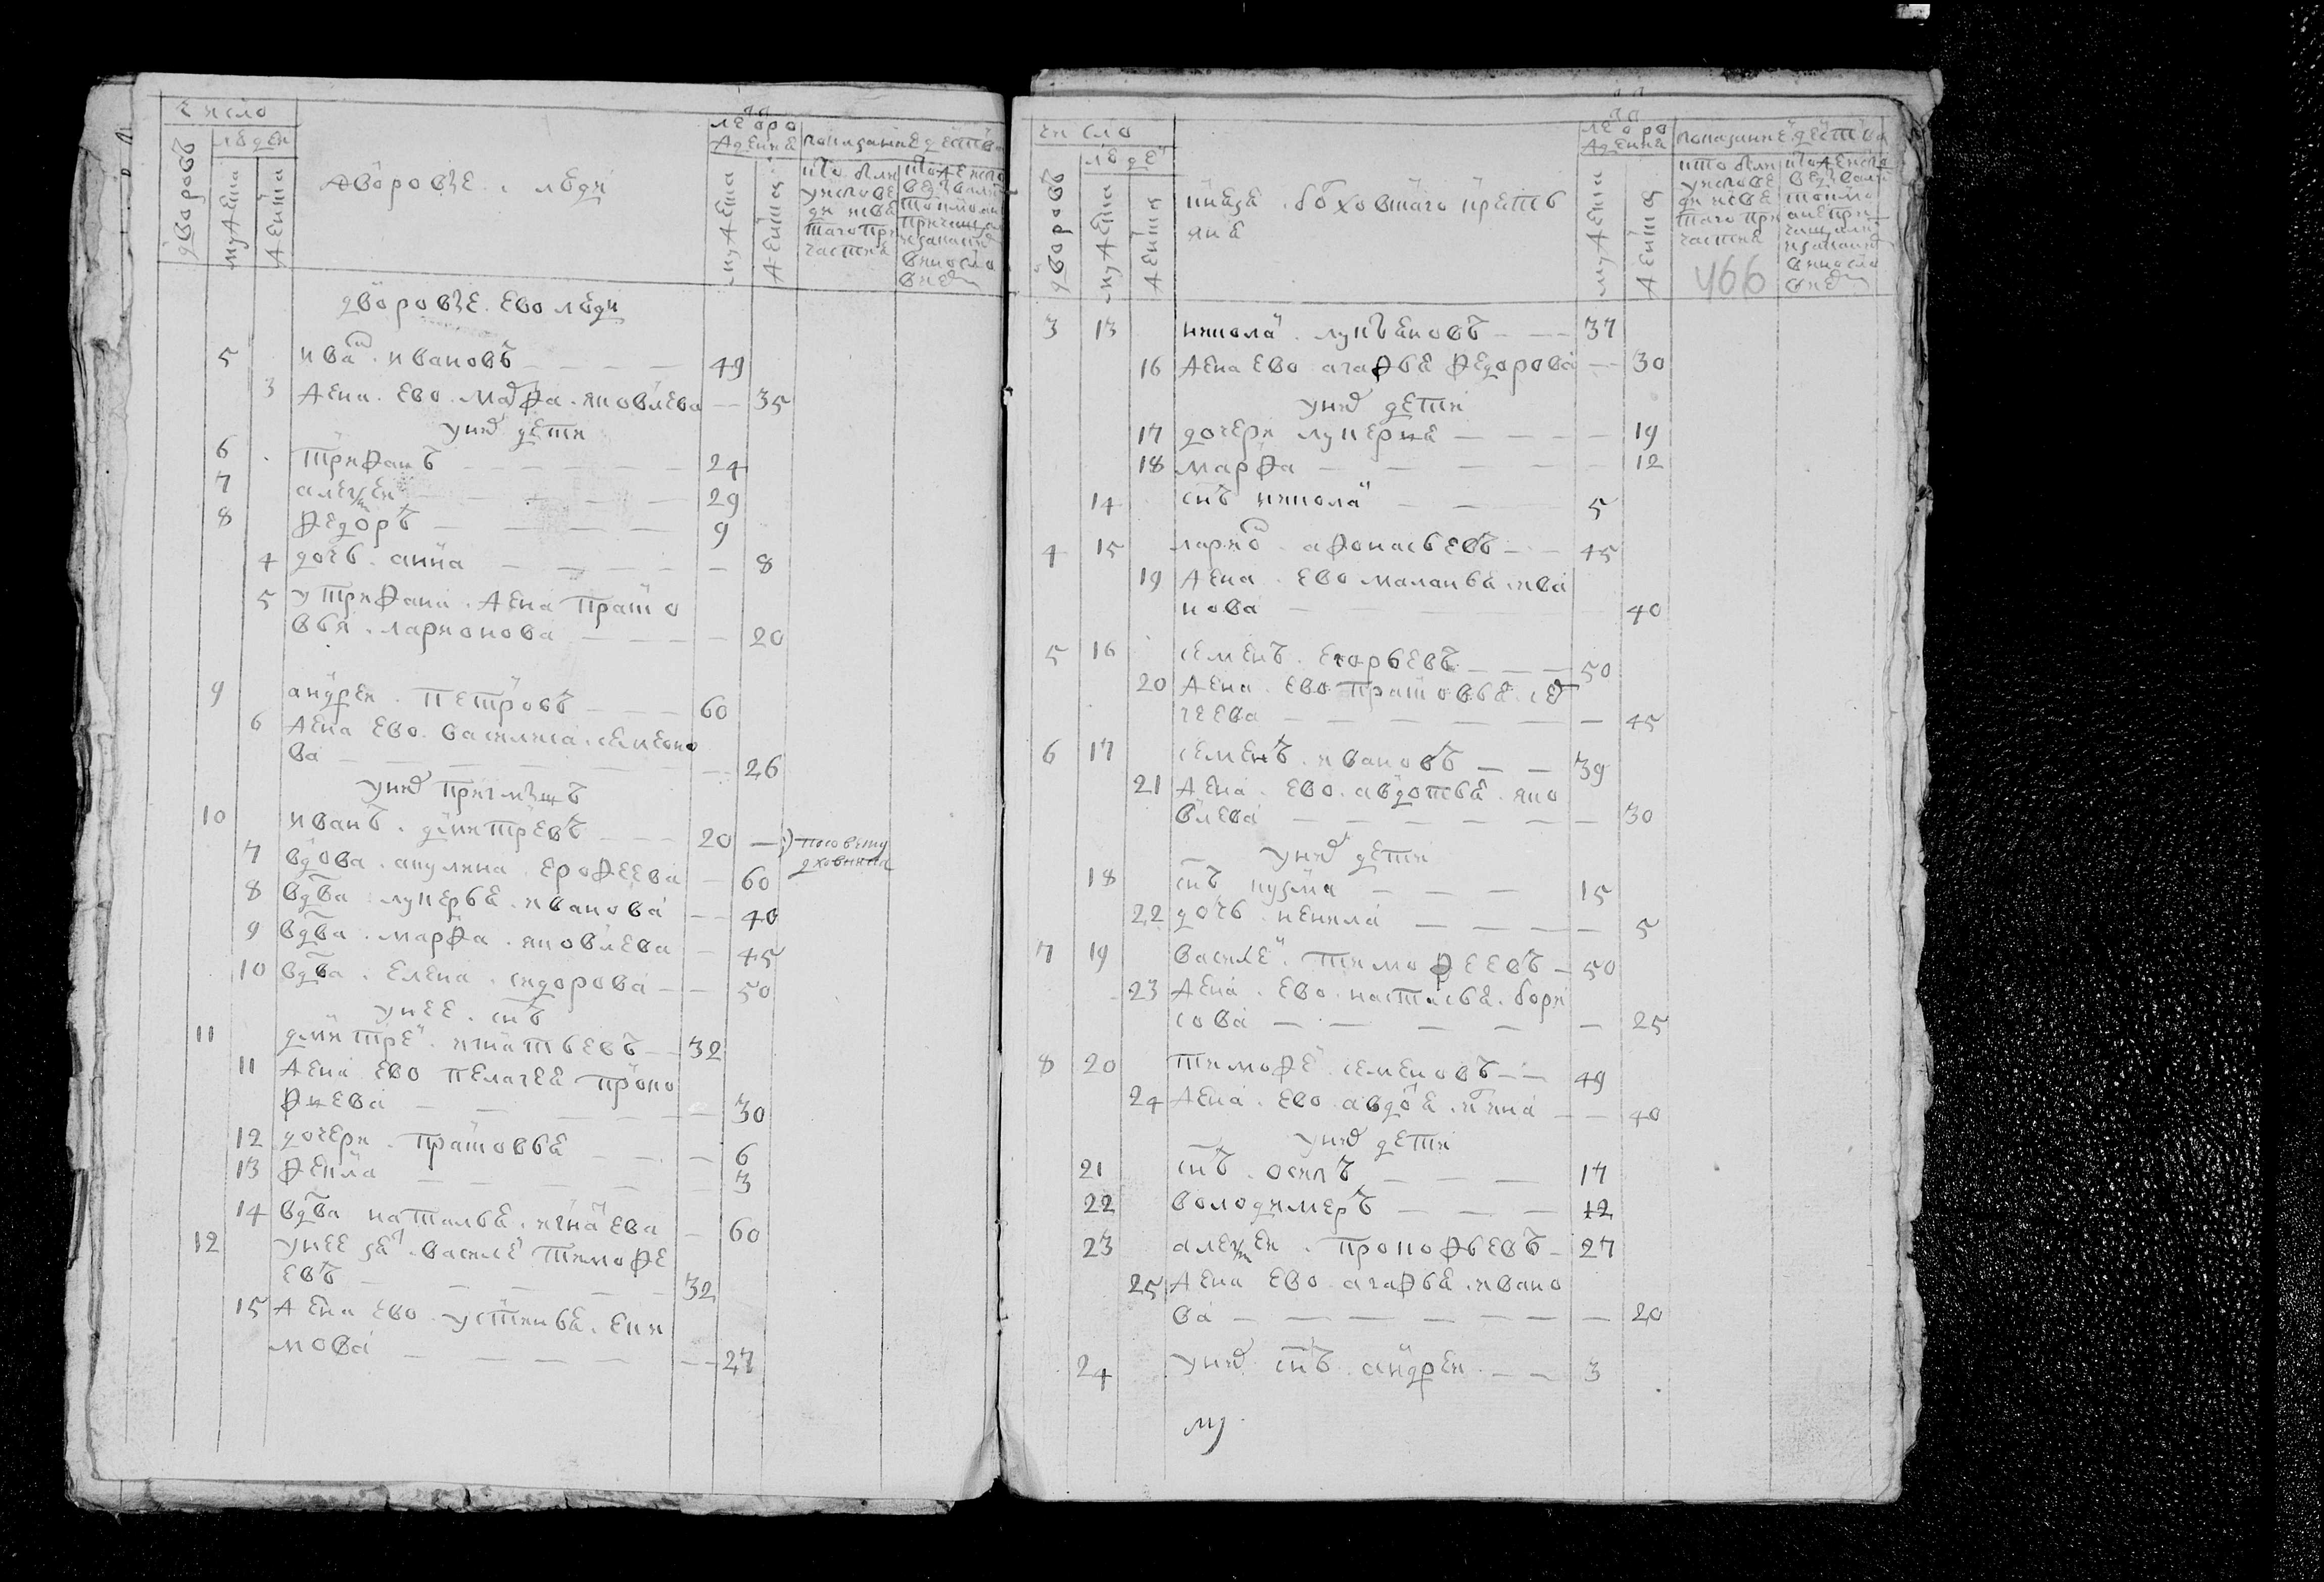 число
дворовъ
людеи
мужеска
женска
дворовые людi
лета от рождения
мужеска
женска
показание действа
кто были у исповеди и святаго причастия
кто же исповедывались токмо а не причащались и за какими винословиями
дворовые ево люди
5 ива иван​овъ 49
3 жена ево мафра яковлева 35
у них дети
6 трифанъ 24
7 алексеи 29
8 федоръ 9
4 дочь анна 8
5 у трифана жена праско
вья ларионова 20
9 андреи петровъ 60
6 жена ево василиса семеоно
ва 26
у них приемышъ
10 иванъ дмитревъ 20
7 вдова акулина ерофеева 60
8 вдва лукерья иванова 40
9 вдва марфа яковлева 45
10 вдва елена сидорова 50
у нее снъ
11 дмитреи игнатьевъ 32
11 жена ево пелагея проко
фиева 30
12 дочери прасковья 6
13 фекла 3
14 вдва наталья игнаева 60
12 у нее зять василеи тимофе
евъ 32
15 жена ево устинья еки
мова 27
число
дворовъ
людеи
мужеска
женска
князя боховскаго крестья
яня
лета от рождения
мужеска
женска
показание действа
466
3 13 никола лукьяновъ 37
16 жена ево агафья федорова 30
у них дети
17 дочери лукерия 19
18 марфа 12
14 снъ никола 5
4 15 ларио афонасьевъ 45
19 жена ево маланья ива
нова 40
5 16 семенъ егорьевъ 50
20 жена ево прасковья сер
геева 45
6 17 семенъ ивановъ 39
21 жена ево авдотья яко
влева 30
у них дети
18 снъ кузма 15
22 дочь некила 5
7 19 василеи тимофеевъ 50
23 жена ево настасья бори
сова 25
8 20 тимофеи семеновъ 49
24 жена ево авдотя 40
у них дети
21 снъ осипъ 17
22 володимеръ 12
23 алексеи прокофьевъ 27
25 жена ево агафья ивано
ва 20
24 у них снъ андреи 3
му